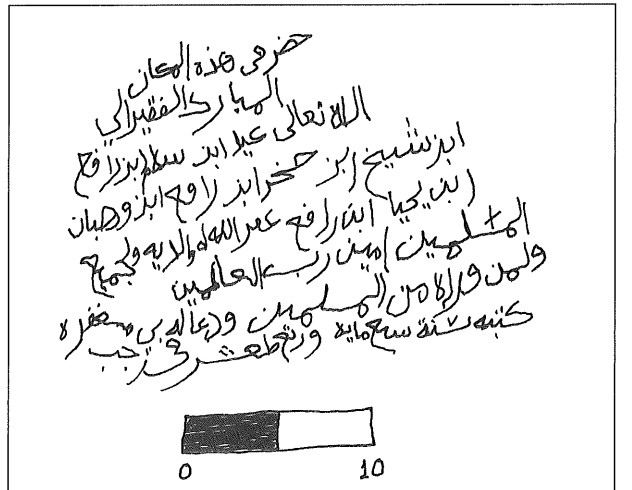 حضر في هذه المكان
المبارك الفقير الي
الله تعالى ابن سالم ابن رافع
ابن شيخ ابن صخر ابن رافع ابن وهبان
ابن يحيا ابن رافع غفر الله له ولوالديه ولجميع
المسلمين امين رب العالمين
ولمن قراه من المسلمين ودعا له بي مغفره
كتبه سنة سبع مايه في رجب
0 10